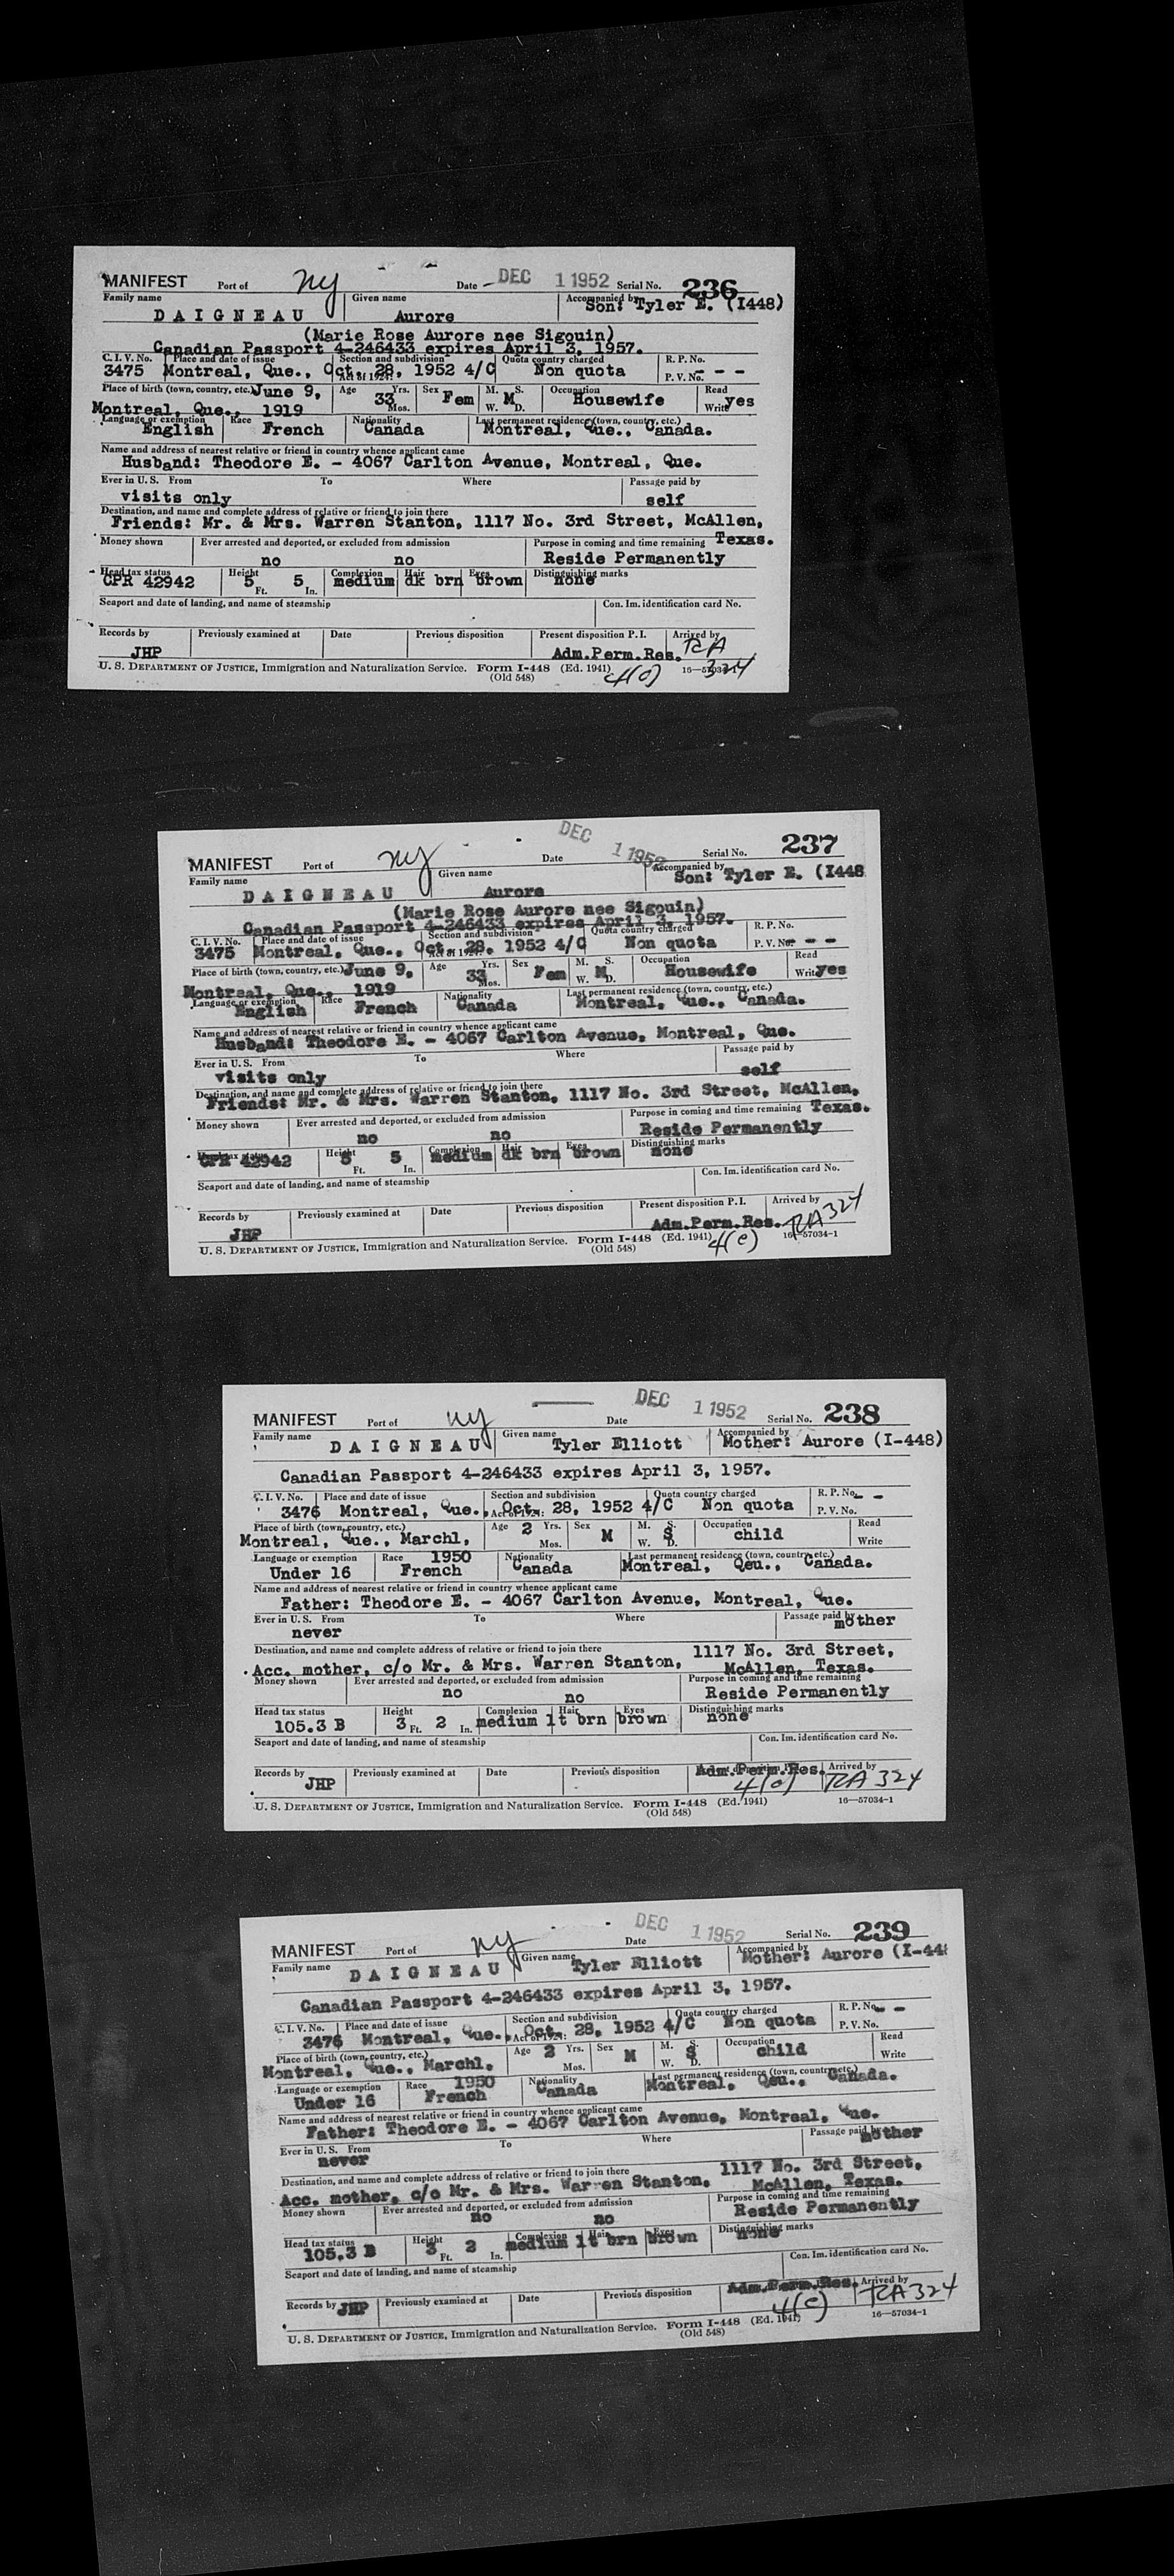 MANIFEST Port of ny Date DEC 1 1952 Serial No. 236
Family name Given name Accompanied by
DAIGNEAU Aurore Son: Tyler E. (I448)
(Marie Rose Aurore nee Sigouin)
Canadian Passport 4-246433 expires April 3, 1957.
C. I. V. No. Place and date of issue Section and subdivision Quota country charged R. P. No.
3475 Montreal, Que., Oct. 28, 1952 4/C Non quota - - -
Act of 1924: P. V. No.
Place of birth (town, country, etc.) June 9, Age 33 Yrs. Sex Fem M. S. Occupation Read
Mos. W. M D. Housewife Write yes
Montreal, Que., 1919
Language or exemption Race Nationality Last permanent residence (town, country, etc.)
English French Canada Montreal, Que., Canada.
Name and address of nearest relative or friend in country whence applicant came
Husband: Theodore E. - 4067 Carlton Avenue, Montreal, Que.
Ever in U. S. From To Where Passage paid by
visits only self
Destination, and name and complete address of relative or friend to join there
Friends: Mr. & Mrs. Warren Stanton, 1117 No. 3rd Street, McAllen,
Money shown Ever arrested and deported, or excluded from admission Purpose in coming and time remaining Texas.
no no Reside Permanently
Head tax status Height Complexion Hair Eyes Distinguishing marks
CPR 42942 5 Ft. 5 In. medium dk brn brown none
Seaport and date of landing, and name of steamship Con. Im. identification card No.
Records by Previously examined at Date Previous disposition Present disposition P. I. Arrived by
JHP Adm.Perm.Res. RA 324
U. S. DEPARTMENT OF JUSTICE, Immigration and Naturalization Service. Form I-448 (Ed. 1941) 4(c) 16—57034-1
(Old 548)
MANIFEST Port of ny Date DEC 1 1952 Serial No. 237
Family name Given name Accompanied by
DAIGNEAU Aurore Son: Tyler E. (I448
(Marie Rose Aurore nee Sigouin)
Canadian Passport 4-246433 expires April 3, 1957.
C. I. V. No. Place and date of issue Section and subdivision Quota country charged R. P. No.
3475 Montreal, Que., Oct. 28, 1952 4/C Non quota - -
Act of 1924: P. V. No.
Place of birth (town, country, etc.) June 9, Age 33 Yrs. Sex Fem M. S. Occupation Read
Mos. W. M D. Housewife Write yes
Montreal, Que., 1919
Language or exemption Race Nationality Last permanent residence (town, country, etc.)
English French Canada Montreal, Que., Canada.
Name and address of nearest relative or friend in country whence applicant came
Husband: Theodore E. - 4067 Carlton Avenue, Montreal, Que.
Ever in U. S. From To Where Passage paid by
visits only self
Destination, and name and complete address of relative or friend to join there
Friends: Mr. & Mrs. Warren Stanton, 1117 No. 3rd Street, McAllen,
Money shown Ever arrested and deported, or excluded from admission Purpose in coming and time remaining Texas.
no no Reside Permanently
Head tax status Height Complexion Hair Eyes Distinguishing marks
CPR 42942 5 Ft. 5 In. medium dk brn brown none
Seaport and date of landing, and name of steamship Con. Im. identification card No.
Records by Previously examined at Date Previous disposition Present disposition P. I. Arrived by
JHP Adm.Perm.Res. RA 324
U. S. DEPARTMENT OF JUSTICE, Immigration and Naturalization Service. Form I-448 (Ed. 1941) 4(c) 16—57034-1
(Old 548)
MANIFEST Port of ny Date DEC 1 1952 Serial No. 238
Family name Given name Accompanied by
DAIGNEAU Tyler Elliott Mother: Aurore (I-448)
Canadian Passport 4-246433 expires April 3, 1957.
C. I. V. No. Place and date of issue Section and subdivision Quota country charged R. P. No. - -
3476 Montreal, Que., Act of 1924: Oct. 28, 1952 4/C Non quota P. V. No.
Place of birth (town, country, etc.) Age 2 Yrs. Sex M M. S. Occupation Read
Montreal, Que., Marchl, Mos. W. S D. child Write
Language or exemption Race 1950 Nationality Last permanent residence (town, country, etc.)
Under 16 French Canada Montreal, Qeu., Canada.
Name and address of nearest relative or friend in country whence applicant came
Father: Theodore E. - 4067 Carlton Avenue, Montreal, Que.
Ever in U. S. From To Where Passage paid by
never mother
Destination, and name and complete address of relative or friend to join there 1117 No. 3rd Street,
Acc. mother, c/o Mr. & Mrs. Warren Stanton, McAllen, Texas.
Money shown Ever arrested and deported, or excluded from admission Purpose in coming and time remaining
no no Reside Permanently
Head tax status Height Complexion Hair Eyes Distinguishing marks
105.3 B 3 Ft. 2 In. medium lt brn brown none
Seaport and date of landing, and name of steamship Con. Im. identification card No.
Records by Previously examined at Date Previous disposition Adm.Perm.Res. Arrived by
JHP 4(c) RA 324
U. S. DEPARTMENT OF JUSTICE, Immigration and Naturalization Service. Form I-448 (Ed. 1941) 16—57034-1
(Old 548)
MANIFEST Port of ny Date DEC 1 1952 Serial No. 239
Family name Given name Accompanied by
DAIGNEAU Tyler Elliott Mother: Aurore (I-448
Canadian Passport 4-246433 expires April 3, 1957.
C. I. V. No. Place and date of issue Section and subdivision Quota country charged R. P. No. - -
3476 Montreal, Que., Act of 1924: Oct. 28, 1952 4/C Non quota P. V. No.
Place of birth (town, country, etc.) Age 2 Yrs. Sex M M. S. Occupation Read
Montreal, Que., Marchl, Mos. W. S D. child Write
Language or exemption Race 1950 Nationality Last permanent residence (town, country, etc.)
Under 16 French Canada Montreal, Qeu., Canada.
Name and address of nearest relative or friend in country whence applicant came
Father: Theodore E. - 4067 Carlton Avenue, Montreal, Que.
Ever in U. S. From To Where Passage paid by
never mother
Destination, and name and complete address of relative or friend to join there 1117 No. 3rd Street,
Acc. mother, c/o Mr. & Mrs. Warren Stanton, McAllen, Texas.
Money shown Ever arrested and deported, or excluded from admission Purpose in coming and time remaining
no no Reside Permanently
Head tax status Height Complexion Hair Eyes Distinguishing marks
105.3 B 3 Ft. 2 In. medium lt brn brown none
Seaport and date of landing, and name of steamship Con. Im. identification card No.
Records by JHP Previously examined at Date Previous disposition Adm.Perm.Res. Arrived by
4(c) RA 324
U. S. DEPARTMENT OF JUSTICE, Immigration and Naturalization Service. Form I-448 (Ed. 1941) 16—57034-1
(Old 548)